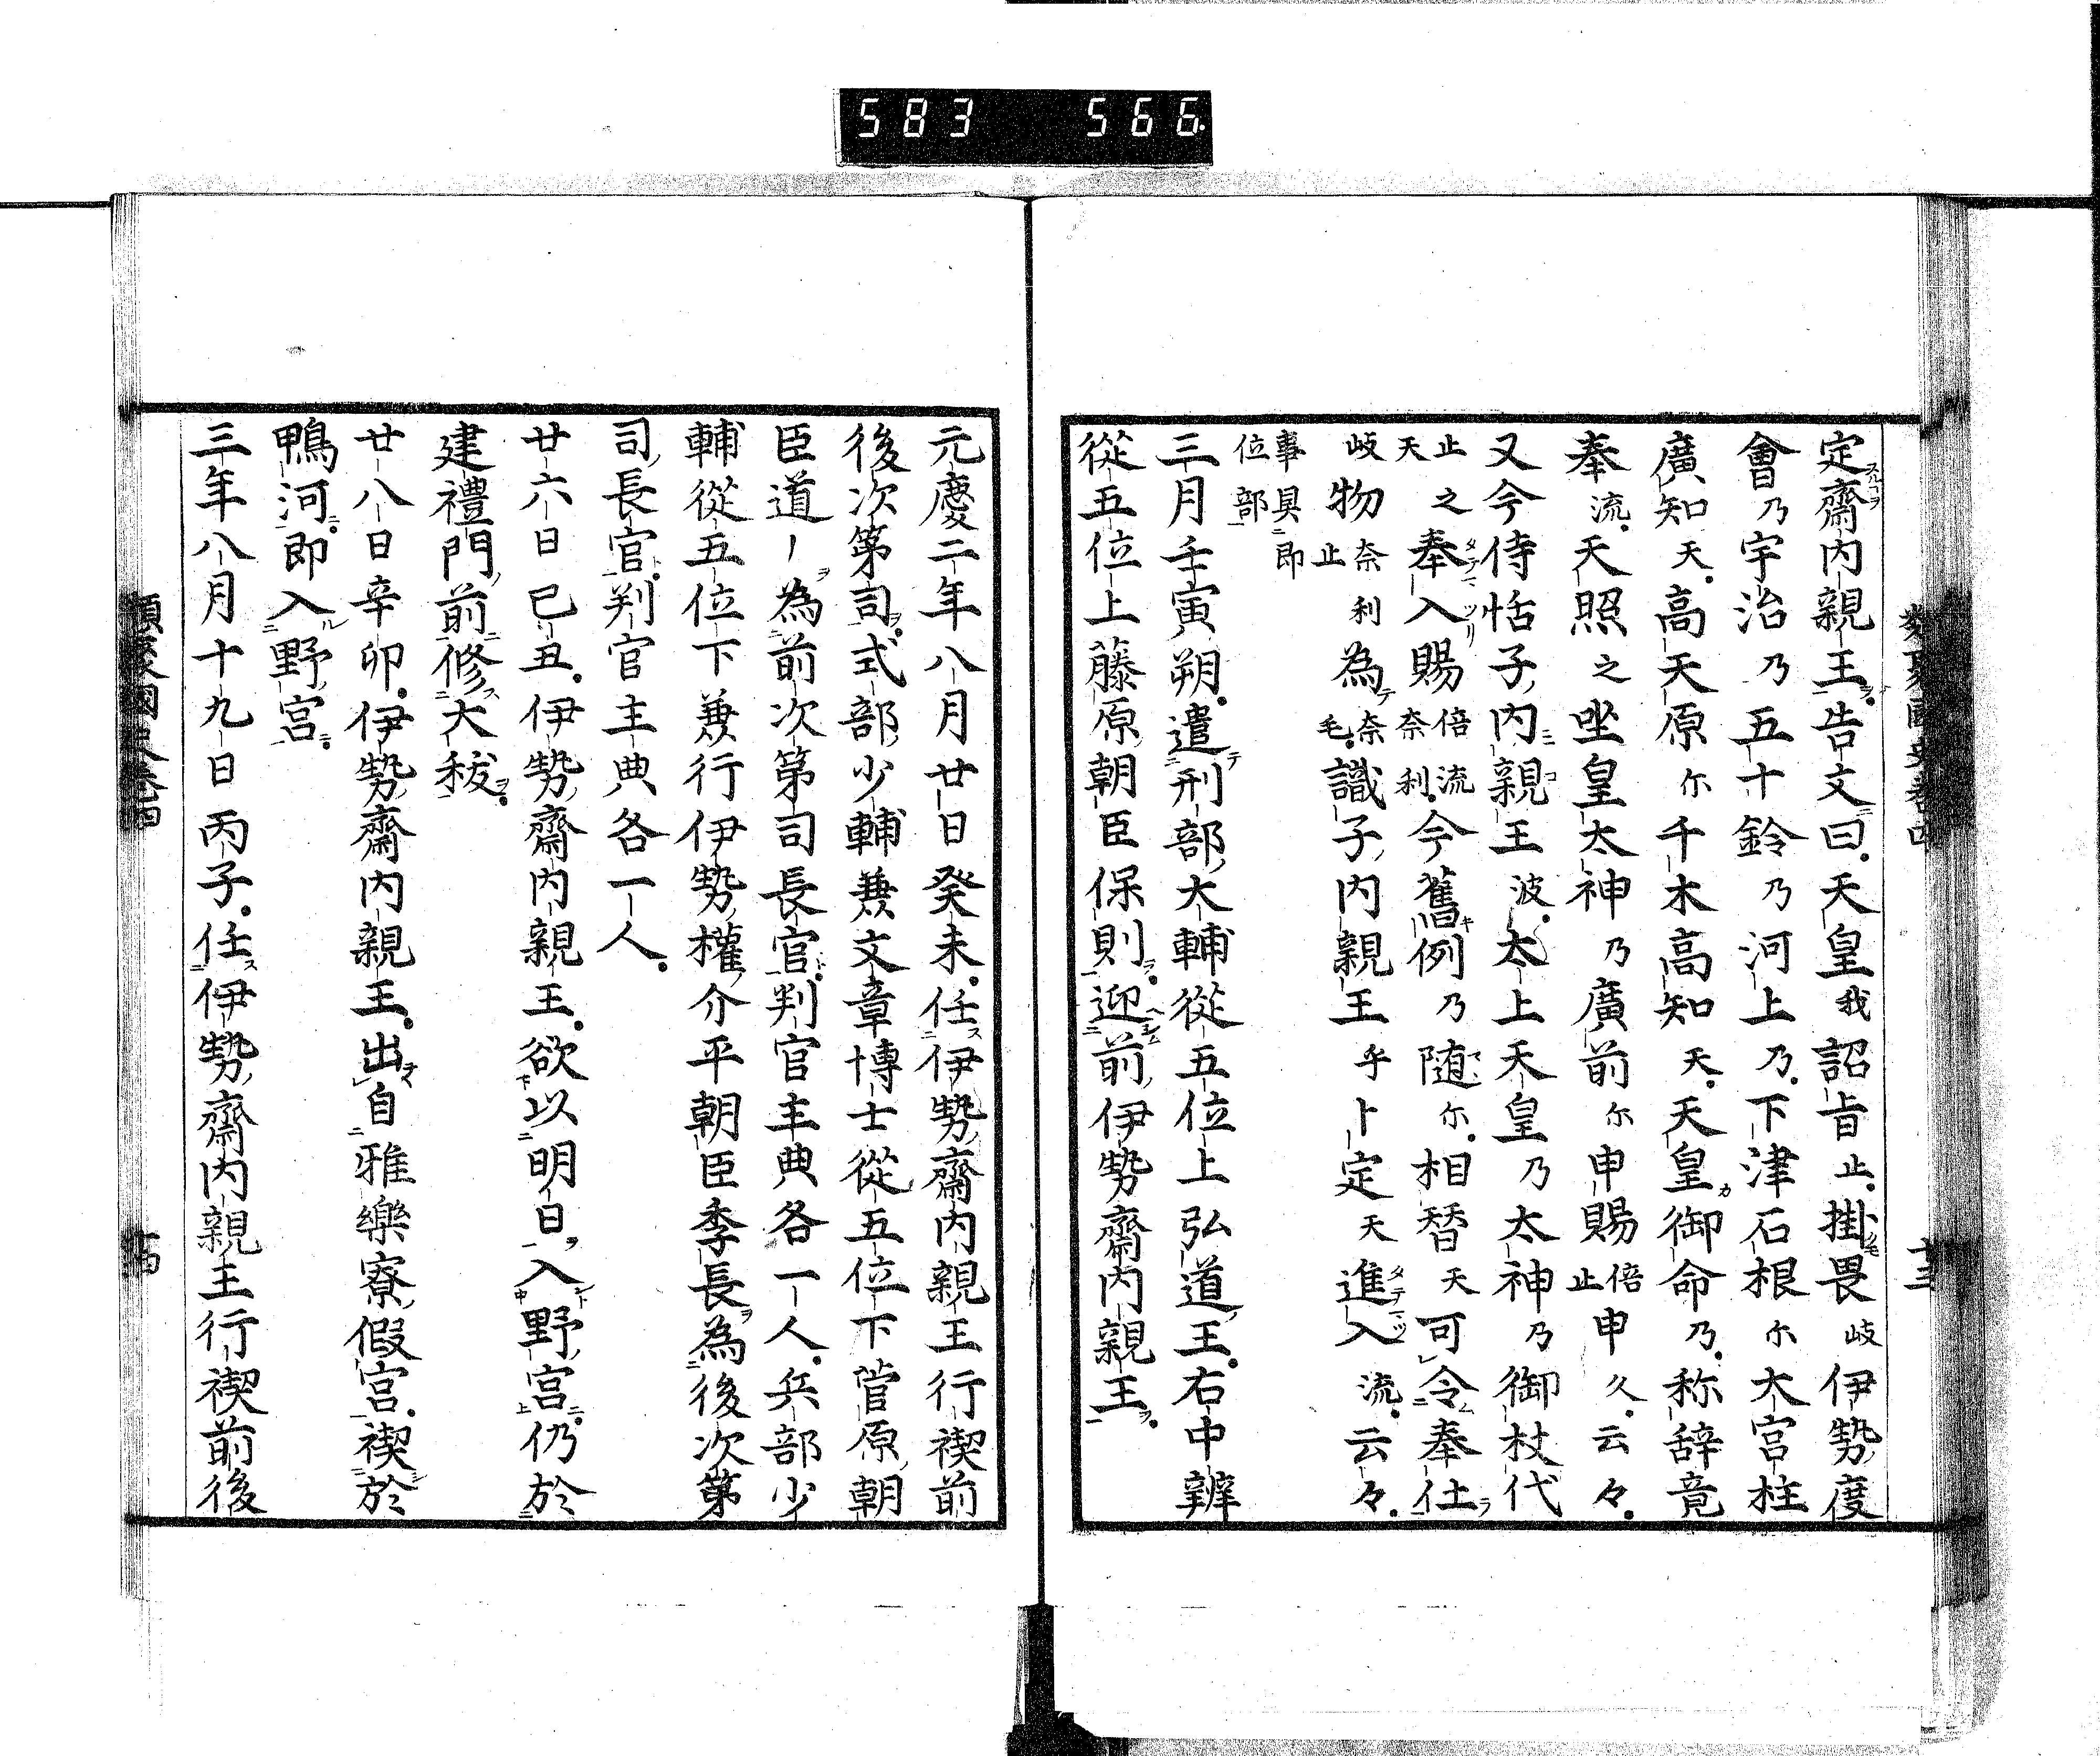 583 566
類聚國史卷四 十三
定齋内親王告文曰天皇我詔旨止掛畏岐伊勢度
會乃宇治乃五十鈴乃河上乃下津石根尓大宮柱
廣知天高天原尓千木高知天天皇御命乃称辞竟
奉流天照之坐皇太神乃廣前尓申賜倍止申久云々
又今侍恬子内親王波太上天皇乃太神乃御杖代
止之天奉入賜倍流奈利今舊例乃随尓相替天可令奉仕
岐物奈利止為奈毛識子内親王乎卜定天進入流云々
事具即位部
三月壬寅朔遣刑部大輔從五位上弘道王右中辨
從五位上藤原朝臣保則迎前伊勢齋内親王
元慶二年八月廿日癸未任伊勢齋内親王行禊前
後次第司式部少輔兼文章博士從五位下菅原朝
臣道ー為前次第司長官判官主典各一人兵部少
輔從五位下兼行伊勢權介平朝臣季長為後次第
司長官判官主典各一人
廿六日己丑伊勢齋内親王欲以明日入野宮仍於
建禮門前修大秡
廿八日辛卯伊勢齋内親王出自雅樂寮假宮禊於
鴨河即入野宮
三年八月十九日丙子任伊勢齋内親王行禊前後
類聚國史卷四